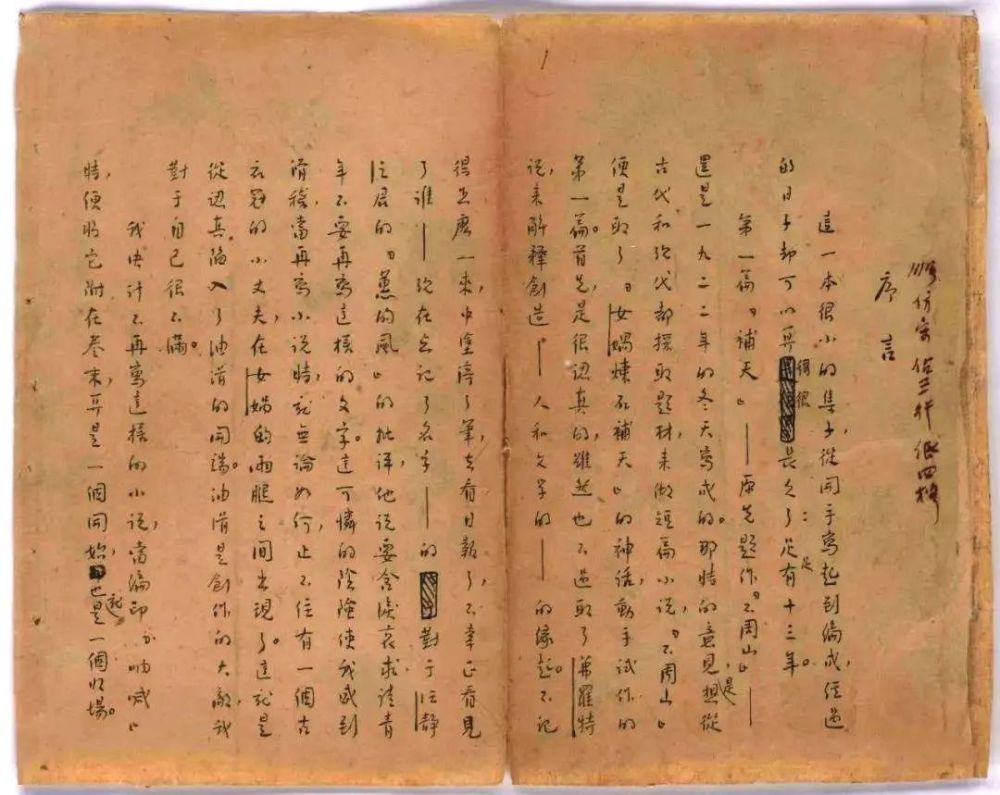 1
仿宋 佔三行 低四格
序言
這一本很小的集子,從開手寫起到編成,經過
的日子卻可以算得很長久了:足足有十三年。
第一篇『補天』——原先題作『不周山』——
還是一九二二年的冬天寫成的。那時的意見,是想從
古代和現代都採取題材,來做短篇小說,『不周山』
便是取了『女媧煉石補天』的神話,動手試作的
第一篇。首先,是很認真的,雖然也不過取了茀羅特
說,來解釋創造——人和文學的——的緣起。不記
得怎麼一來,中途停了筆,去看日報了,不幸正看見
了誰——現在忘記了名字——的對于汪靜
之君的『蕙的風』的批評,他說要含淚哀求,請青
年不要再寫這樣的文字。這可憐的陰險使我感到
滑稽,當再寫小說時,就無論如何,止不住有一個古
衣冠的小丈夫,在女媧的兩腿之間出現了。這就是
從認真陷入了油滑的開端。油滑是創作的大敵,我
對于自己很不滿。
我決計不再寫這樣的小說,當編印『吶喊』
時,便將它附在卷末,算是一個開始,也就是一個收場。